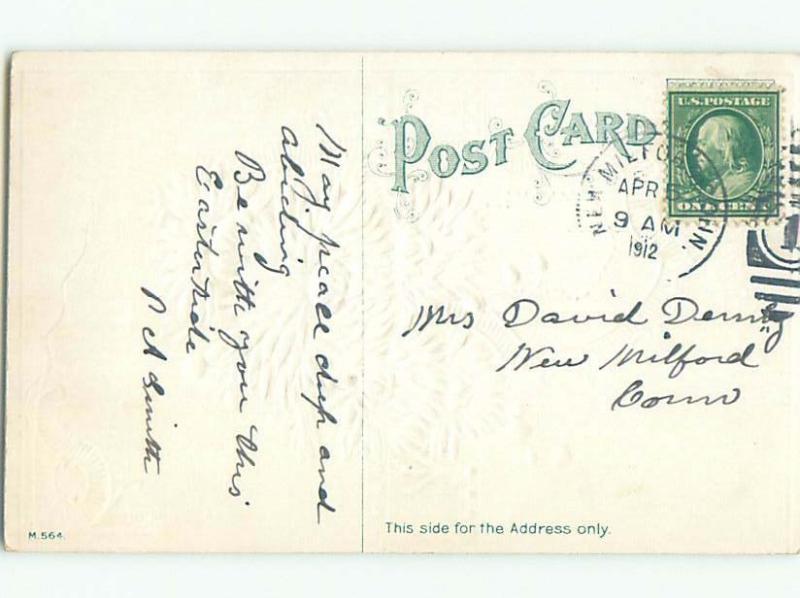 May peace deep and
abiding
Be with you this
Eastertide
A Smith
POST CARD
U.S. POSTAGE
ONE CENT
NEW MILFORD
APR
9 AM
1912
Mrs David
New Milford
Conn
This side for the Address only.
M.564.